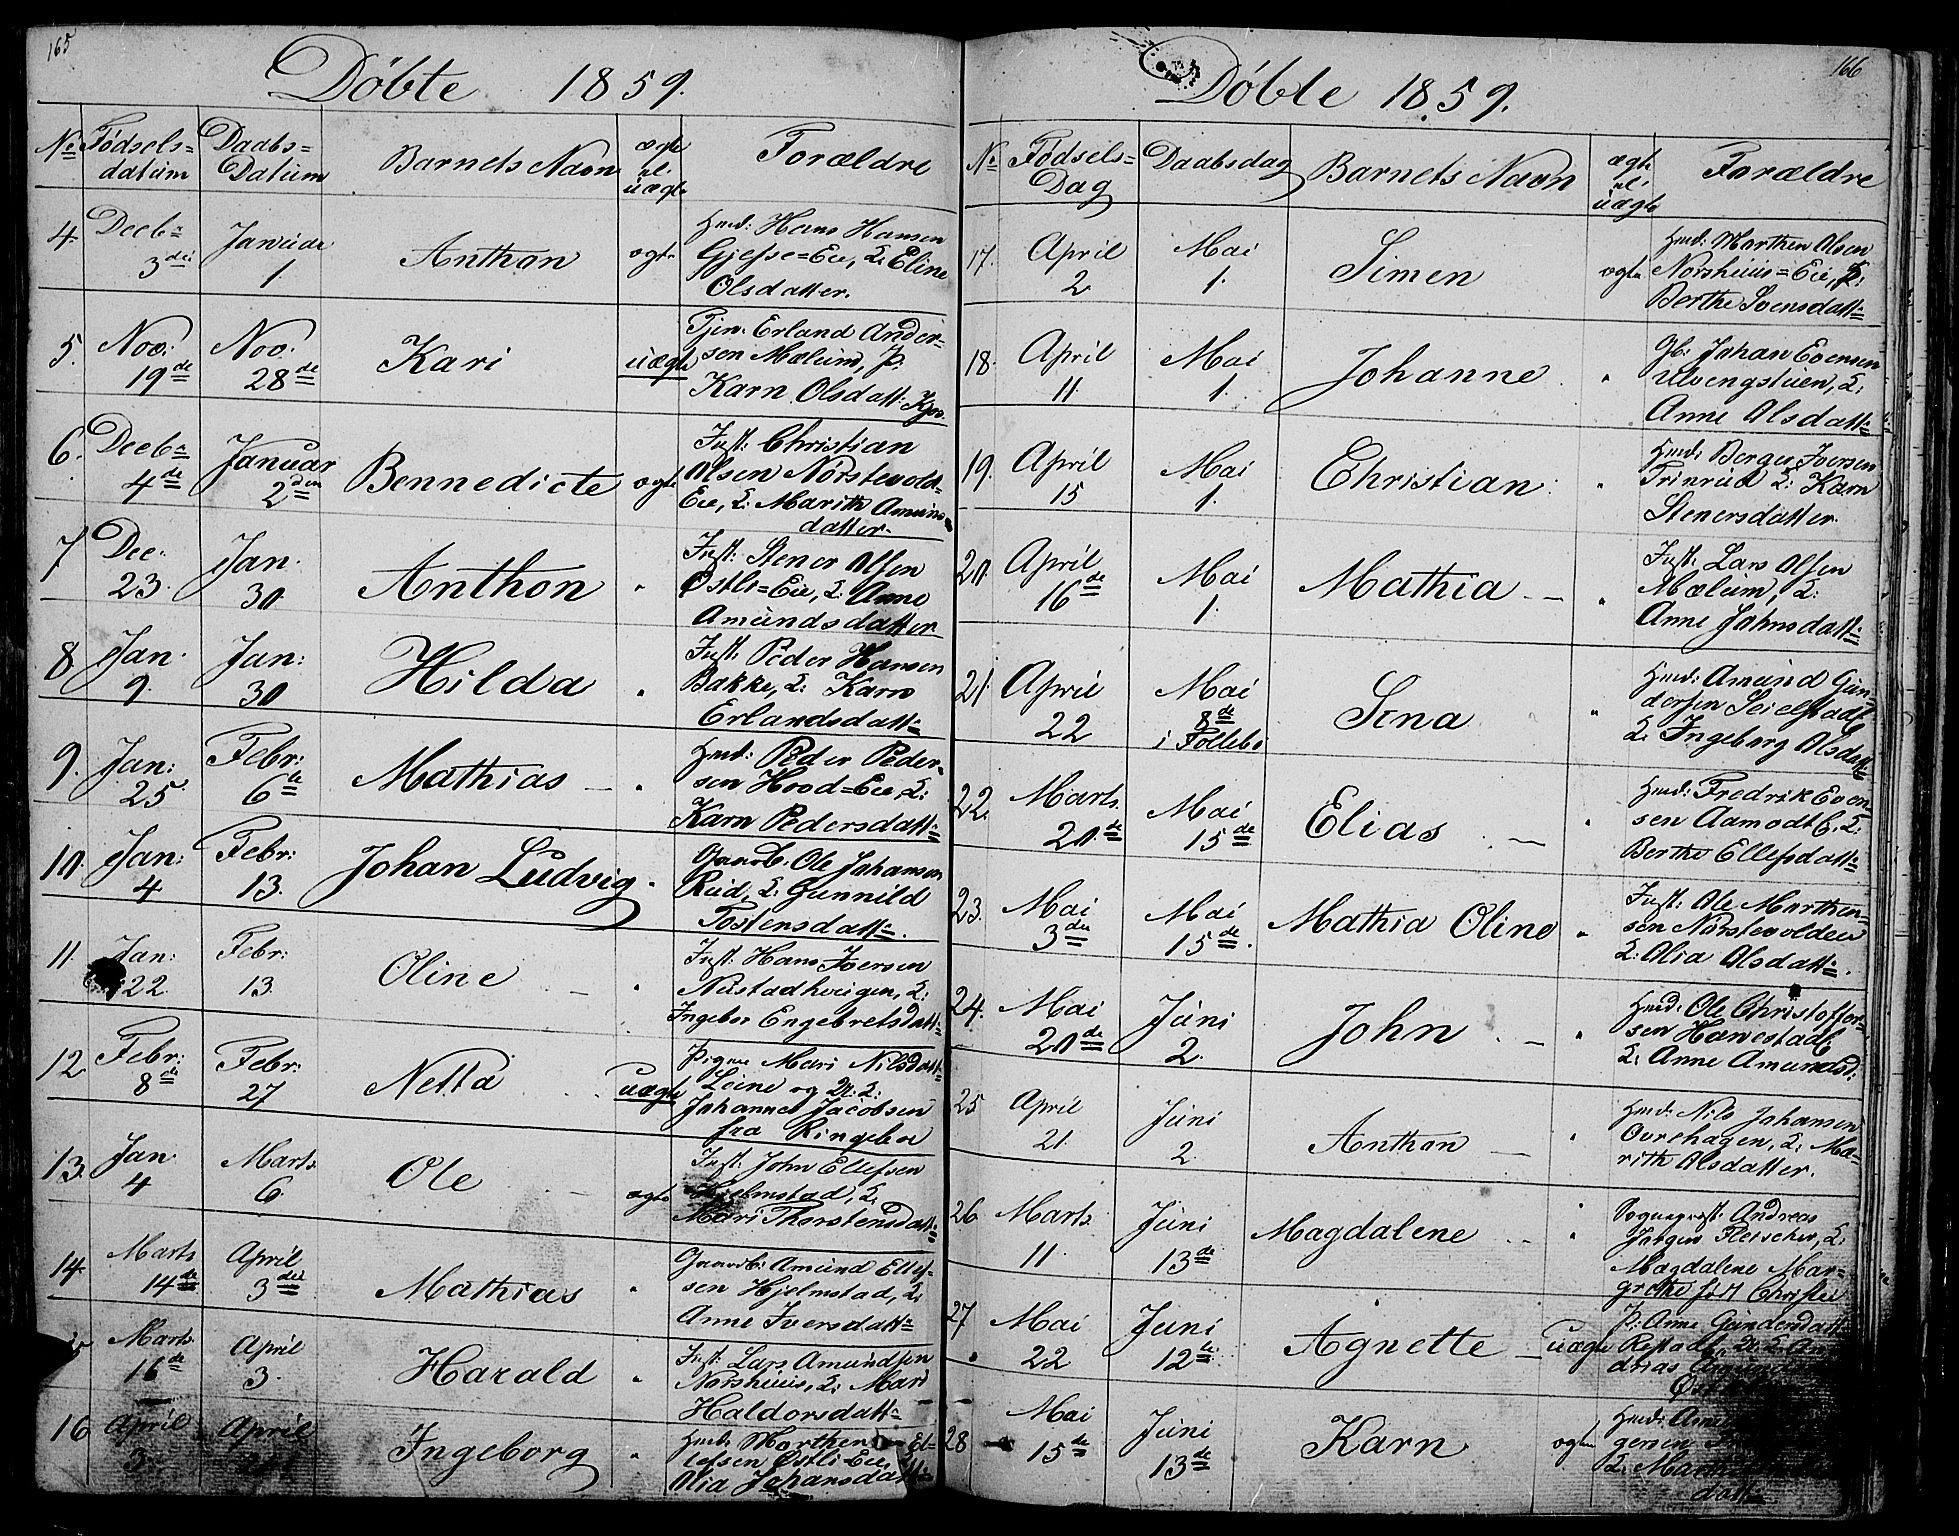 165
Döbte 1859.
No Födsels= datum Daabs= Datum Barnets Navn ægte el. uægte Forældre
4. Decb. 3die Januar 1 Anthon ægte Hmd: Hans Hansen
Gjefse=Eie, H: Eline
Olsdatter.
5. Nov. 19de Nov. 28de Kari uægte Tjen. Erland Ander-
sen Mælum, p:
Karn Olsdatt:
6. Decb. 4de Januar 2den Bennedicte ægte Inst: Christian
Olsen Nörstevold=
Eie, H: Marith Amuns=
datter.
7 Dec. 23. Jan. 30. Anthon " Inst: Stener Olsen
Östli=Eie, H: Anne
Amundsdatter
8 Jan. 9. Jan: 30 Hilda " Inst: Peder Hansen
Bakke, H: Karn
Erlandsdatt:
9. Jan: 25 Febr: 6te Mathias — " Hmd: Peder Peder-
sen Hood=Eie, H:
Karn Pedersdatt:
10. Jan: 4 Febr: 13. Johan Ludvig. Gaardb. Ole Johansen
Rud, H: Gunnild
Tostensdatt:
11. Jan: 22 Febr: 13. Oline — " Inst: Hans Iversen
Nustadhougen, H:
Ingebor Engebretsdatt:
12 Febr: 8de Febr: 27 Netta uægte Pigen Mari Nilsdatt:
Loine og U. K:
Johannes Jacobsen
fra Ringeboe
13. Jan. 4 Marts 6. Ole — ægte Inst: John Ellefsen
Hjelmstad, H:
Mari Thorstensdatt:
14. Marts 14de April 3die Mathias " Gaardb: Amund Ellef-
sen Hjelmstad, H:
Anne Iversdatt:
Marts 16de April 3. Harald " Inst: Lars Amundsen
Norshuus, H: Mari
Haldorsdatt:
16 April 3 April Ingeborg " Hmd: Morthen El-
lefsen Östli Eie, H:
Olia Johansdatt:
166
Döbte 1859.
No Födsels= Dag Daabsdag Barnets Navn ægte el. uægte Forældre
17. April 2 Mai 1. Simen ægte Hmd: Morthen Olsen
Norshuus=Eie, H:
Berthe Svensdatt:
18. April 11 Mai 1. Johanne " Gb: Johan Evensen
Ulvengstuen, H:
Anne Olsdatt:
19. April 15 Mai 1. Christian " Hmd: Berger Iversen
Trinrud H: Karn
Stenersdatter.
20. April 16de Mai 1. Mathia — " Inst: Lars Olsen
Mælum, H:
Anne Johnsdatt:
21. April 22 Mai 8de i Follebo Sina " Hmd: Amund Gun-
dersen Seielstad
H: Ingeborg Olsdatt:
22. Marts 20de Mai 15de Elias — " Hmd: Fredrik Even-
sen Aamodt E. H:
Berthe Ellefsdatt:
23. Mai 3die Mai 15de. Mathia Oline " Inst: Ole Morthen-
sen Nörstevolden
H: Olia Olsdatt:
24. Mai 20de Juni 2. John — " Hmd: Ole Christoffer-
sen Hævestad
H: Anne Amundsd:
25 April 21. Juni 2. Anthon — " Hmd: Nils Johansen
Ovrehagen, H: Ma-
rith Olsdatter.
26 Marts 11. Juni 13de Magdalene " Sogneprest: Andreas
Jörgen Fleischer, H:
Magdalene Mar-
grethe födt Christie
27 Mai 22 Juni 12te Agnette — uægte P: Anne Gundersdatt:
drias
28 Mai 15de Juni 13de Karn ægte Hmd:
gersen
H:
datt: